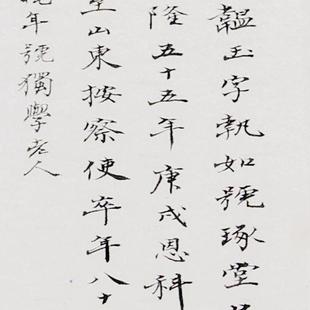 韞玉字執如號琢堂
隆五十五年庚戌恩科
至山東按察使卒年八十
晚年號獨學老人